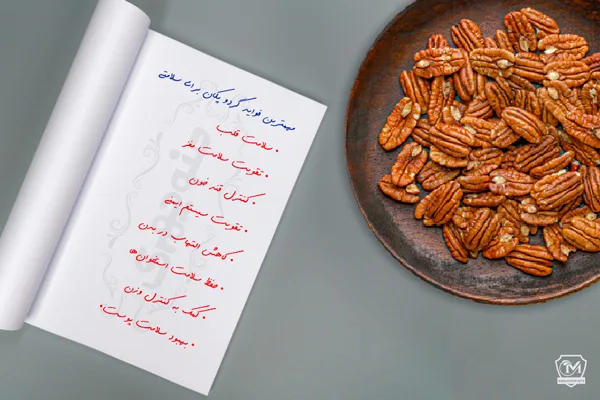 مهمترین فواید گردو پکان برای سلامتی
• سلامت قلب
• تقویت سلامت مغز
• کنترل قند خون
• تقویت سیستم ایمنی
• کاهش التهاب در بدن
• حفظ سلامت استخوان‌ها
• کمک به کنترل وزن
• بهبود سلامت پوست.